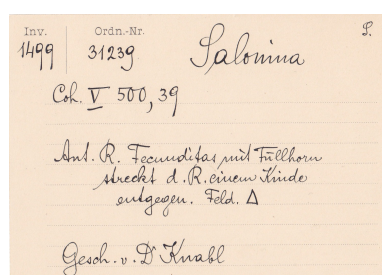 Inv. Ordn.-Nr. S.
1499 31239 Salonina
Coh. V 500, 39
Ant. R. Fecunditas mit Füllhorn
streckt d. R. einem Kinde
entgegen. Feld. Δ
Gesch. v. Dr Knabl